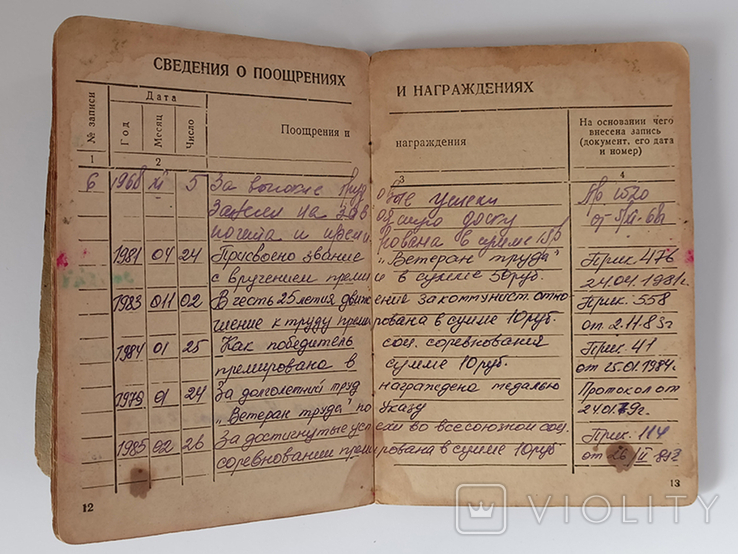 СВЕДЕНИЯ О ПООЩРЕНИЯХ И НАГРАЖДЕНИЯХ
№ записи
Дата
Год
Месяц
Число
Поощрения и награждения
На основании чего
внесена запись
(документ, его дата
и номер)
1 2 3 4
6 1968 XI 5 За высокие трудовые успехи Пр 1520
занесен на заводскую доску от 5/XI-68
почета и премирована в сумме
1981 04 24 Присвоено звание „Ветеран труда" Прик. 476
с вручением премии в сумме 50руб. 24.04.1981г.
1983 011 02 В честь 25летия движение за коммунист. отно- Прик. 558
шение к труду премирована в сумме 10руб. от 2.11.83г
1984 01 25 Как победитель соц. соревнования Прик. 41
премирована в сумме 10руб. от 25.01.1984г.
1979 01 24 За долголетний труд награждена медалью Протокол от
„Ветеран труда" по Указу 24.01.79г.
1985 02 26 За достигнутые успехи во всесоюзном соц. Прик. 114
соревновании премирована в сумме 10руб от 26/II-85г
12
13
VIOLITY